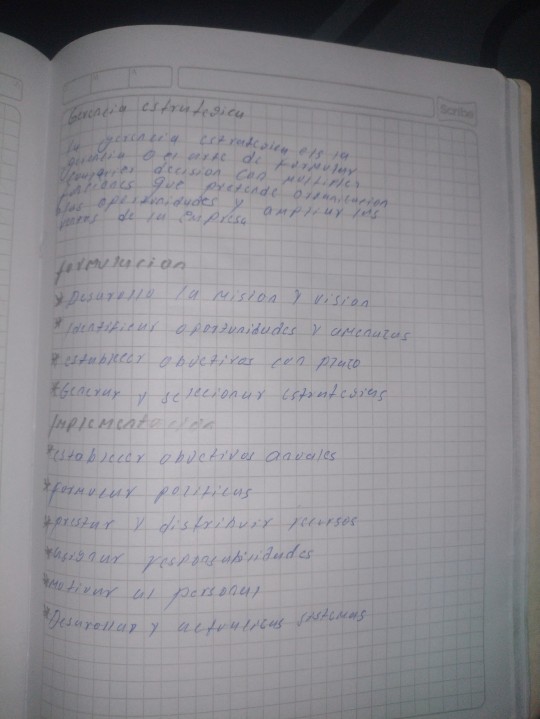 Scribe
Gerencia estrategica
La gerencia estrategica es la
o el arte de formular
decision con multiples
funciones que pretende organización
las oportunidades y ampliar las
de la Empresa
formulacion
* Desarrolla la mision y vision
* Identificas oportunidades y amenazas
* establecer objetivos con plazo
* Generar y seleccionar estrategias
Implementación
* establecer objetivos anuales
* formular politicas
* prestar y distribuir recursos
* asignar responsabilidades
* motivar al personal
* Desarollar y actualizas sistemas